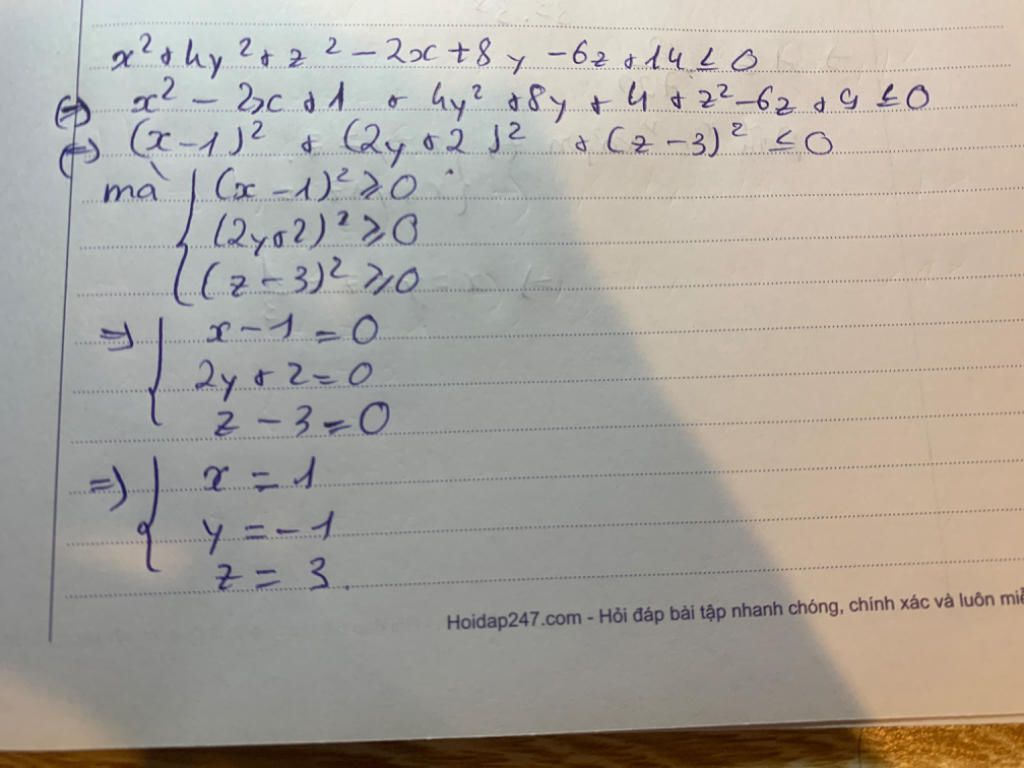 x² + 4y² + z² - 2x + 8y - 6z + 14 ≤ 0
(=) x² - 2x + 1 + 4y² + 8y + 4 + z² - 6z + 9 ≤ 0
(=) (x - 1)² + (2y + 2)² + (z - 3)² ≤ 0
mà { (x - 1)² ≥ 0
(2y + 2)² ≥ 0
(z - 3)² ≥ 0
=> { x - 1 = 0
2y + 2 = 0
z - 3 = 0
=> { x = 1
y = -1
z = 3.
Hoidap247.com - Hỏi đáp bài tập nhanh chóng, chính xác và luôn